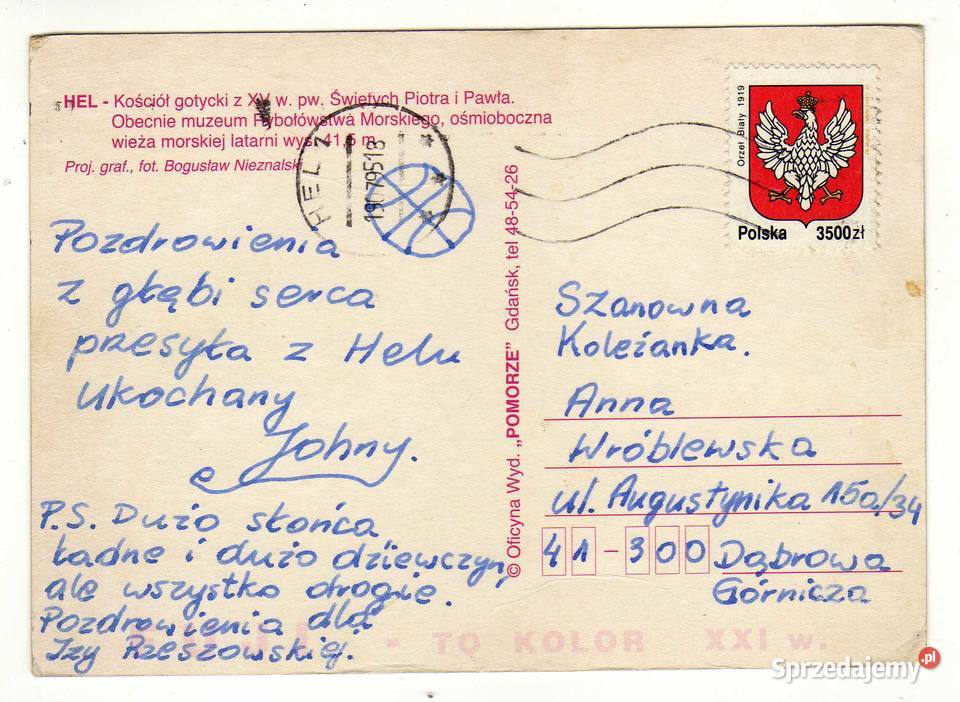 HEL - Kościół gotycki z XV w. pw. Świętych Piotra i Pawła.
Obecnie muzeum Rybołówstwa Morskiego, ośmioboczna
wieża morskiej latarni wys. 41,5 m.
Proj. graf., fot. Bogusław Nieznalski
HEL 2
19079518
Orzeł Biały 1919
Polska 3500zł
Pozdrowienia
z głębi serca
przesyła z Helu
Ukochany
Johny.
P.S. Dużo słońca
ładne i dużo dziewczyn,
ale wszystko drogie.
Pozdrowienia dla
Izy Rzeszowskiej.
© Oficyna Wyd. „POMORZE" Gdańsk, tel 48-54-26
Szanowna
Koleżanka.
Anna
Wróblewska
ul. Augustynika 15a/34
41-300 Dąbrowa
Górnicza
- TO KOLOR XXI w.
Sprzedajemy.pl